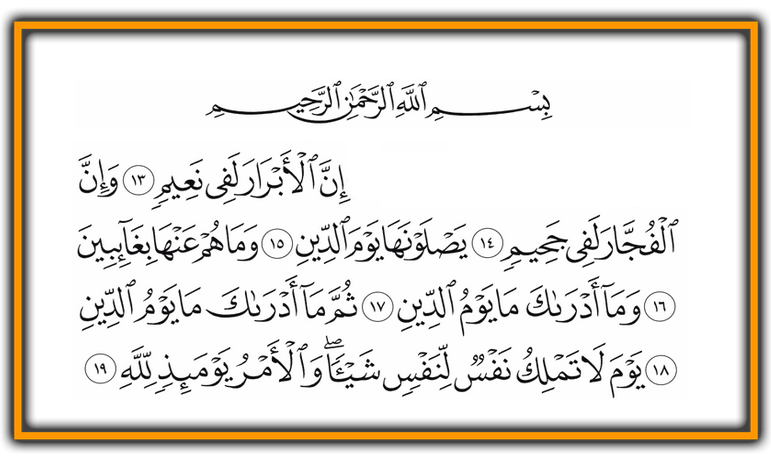 بِسْمِ ٱللَّهِ ٱلرَّحْمَٰنِ ٱلرَّحِيمِ
إِنَّ ٱلْأَبْرَارَ لَفِى نَعِيمٍ ١٣ وَإِنَّ
ٱلْفُجَّارَ لَفِى جَحِيمٍ ١٤ يَصْلَوْنَهَا يَوْمَ ٱلدِّينِ ١٥ وَمَا هُمْ عَنْهَا بِغَآئِبِينَ
١٦ وَمَآ أَدْرَىٰكَ مَا يَوْمُ ٱلدِّينِ ١٧ ثُمَّ مَآ أَدْرَىٰكَ مَا يَوْمُ ٱلدِّينِ
١٨ يَوْمَ لَا تَمْلِكُ نَفْسٌ لِّنَفْسٍ شَيْـًٔا ۖ وَٱلْأَمْرُ يَوْمَئِذٍ لِّلَّهِ ١٩